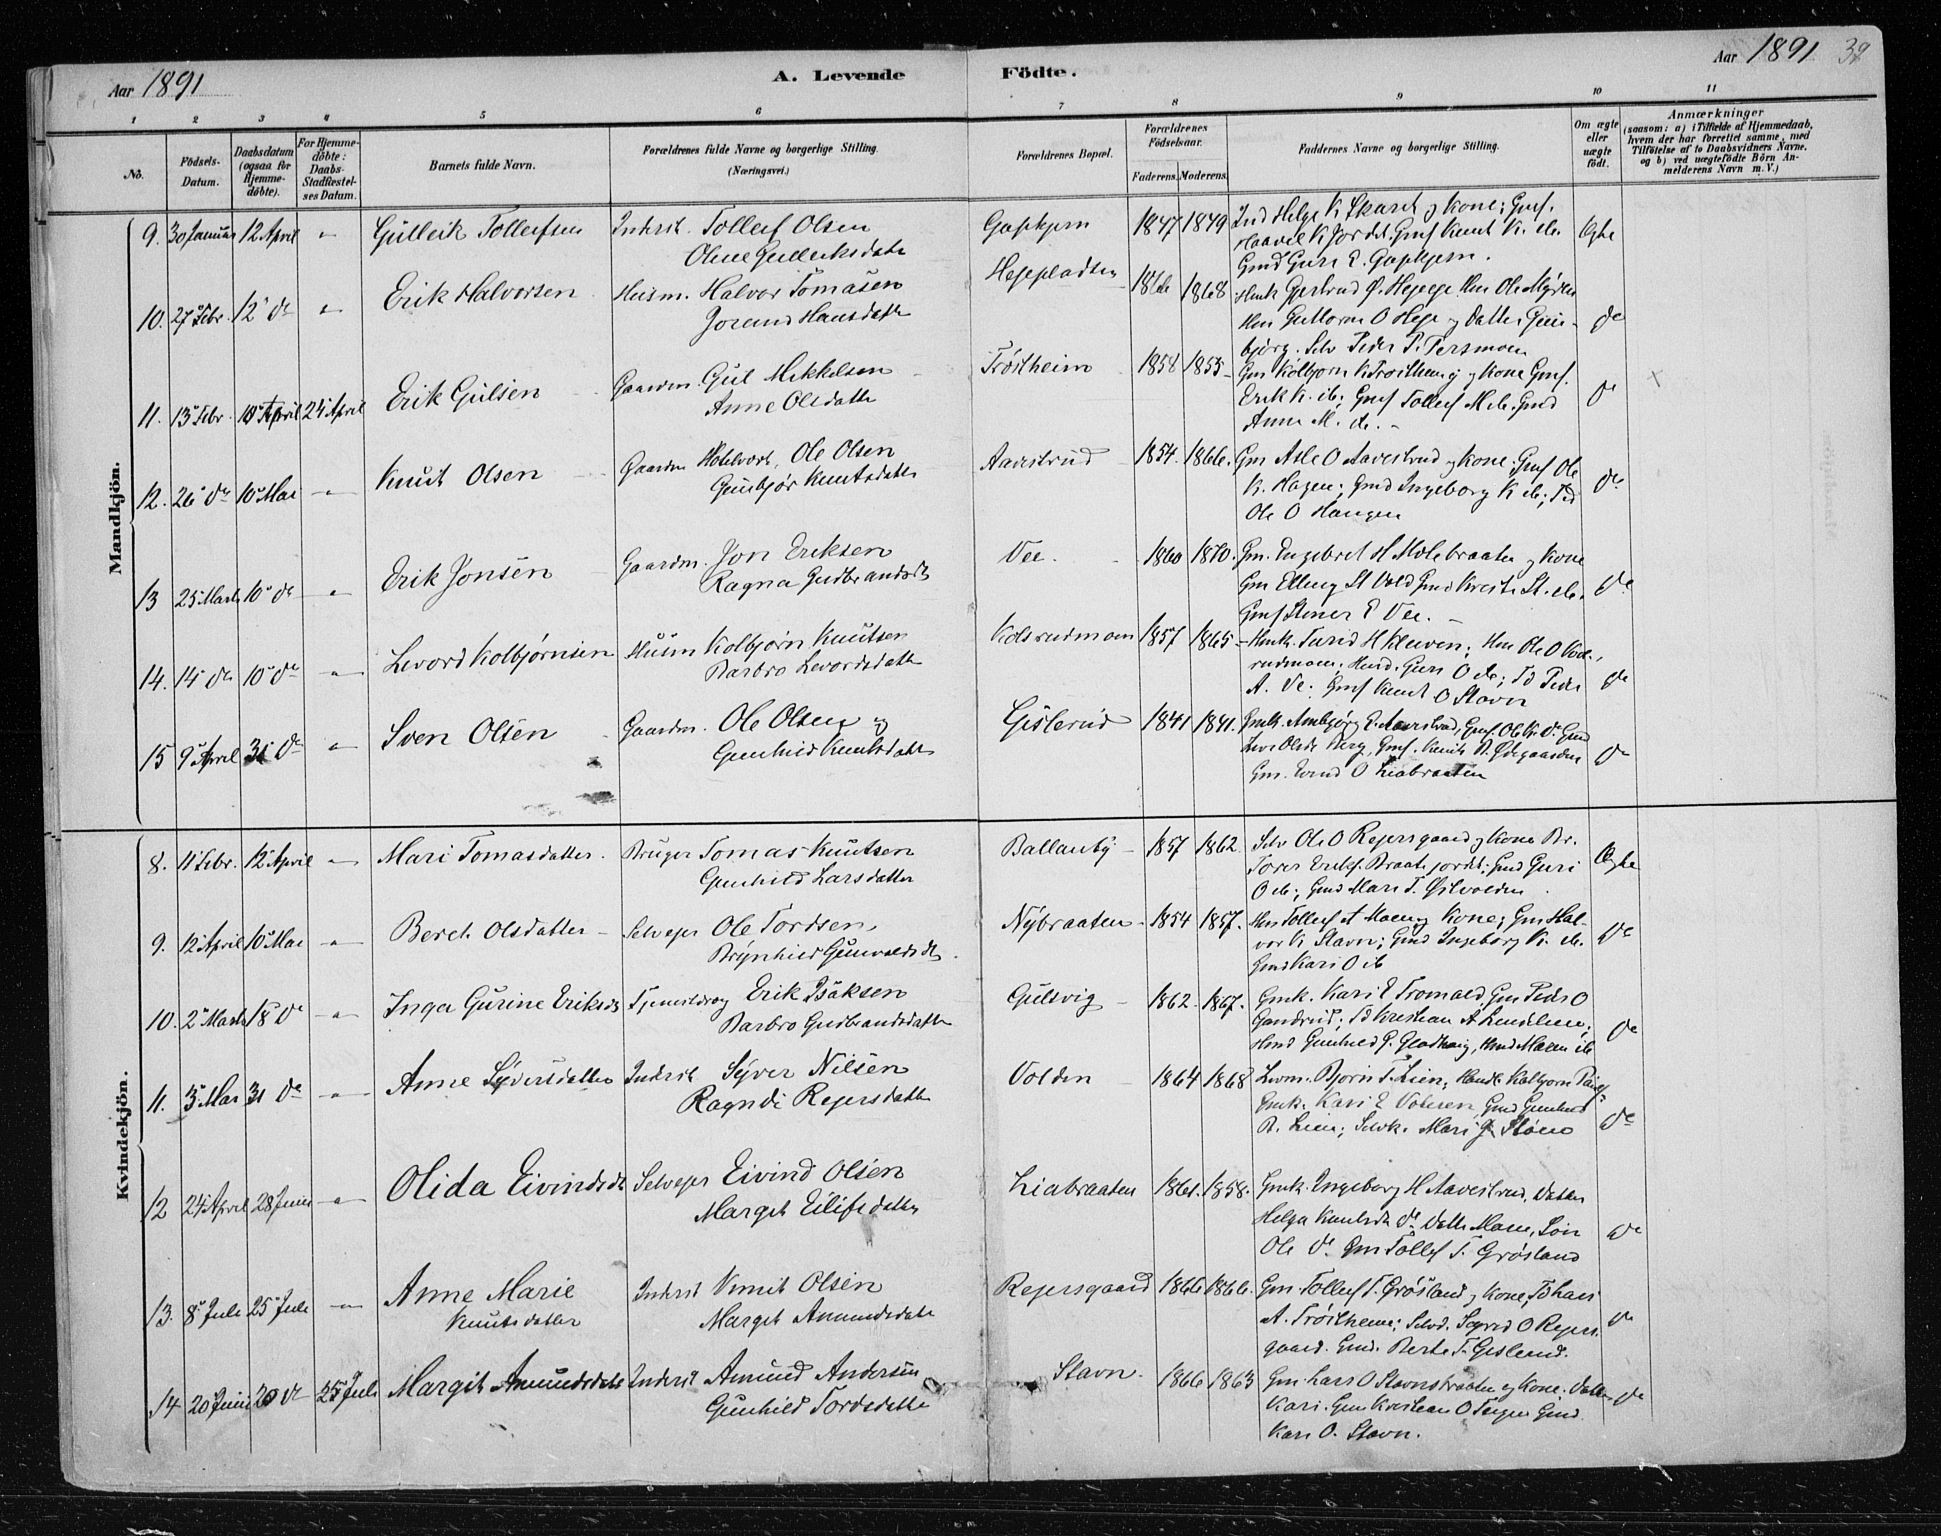 Aar 1891
A. Levende Födte.
Aar 1891 39
1 2 3 4 5 6 7 8 9 10 11
No.
Födsels-Datum.
Daabsdatum (ogsaa for Hjemme-døbte).
For Hjemme-døbte: Daabs-Stadfæstel-ses Datum.
Barnets fulde Navn.
Forældrenes fulde Navne og borgerlige Stilling.
(Næringsvei.)
Forældrenes Bopæl.
Forældrenes Födselsaar.
Faderens. Moderens.
Faddernes Navne og borgerlige Stilling.
Om ægte eller uægte födt.
Anmærkninger
(saasom: a) i Tilfælde af Hjemmedaab, hvem der har forrettet samme, med Tilföielse af to Daabsvidners Navne, og b) ved uægtefödte Börn An-melderens Navn m. V.)
Mandkjön.
9. 30 Januar 12 April " Gullerik Tollefsen Inderst. Tollef Olsen
Oline Gulleriksdatr
Gapkjern 1847 1849 Ind Helge K Skaret og Kone; Gmf.
Haavel K Jordet. Gmf Knut K. ib.
Gmd Guri E. Gapkjern.
Ægte
10. 27 Febr. 12 do " Erik Halvorsen Husm. Halvor Tomasen
Jorand Hansdatr
Hegepladsen 1866 1868
Hus Guttorm O Hege og Datter Gun-
bjørg. Selv Peder P. Persmoen
do
11. 13 Febr. 10 April 24 April Erik Gulsen Gaardm. Gul Mikkelsen
Anne Olsdatter
Trøstheim 1858 1855 Gm Kolbjørn K Trøstheim og Kone Gmf.
Erik K. ib; Gmf Tollef M ib. Gmd
Anne M. do. -
do x
12. 26 do 10 Mai " Knut Olsen Gaardm Hotelvært. Ole Olsen
Gunbjør Knutsdatter
Aavestrud 1854. 1866. Gm Asle O Aavestrud og Kone; Gmf Ole
K. Hagen; Gmd Ingeborg K ib; Td
Ole O Haugen
do
13 25 Marts 10 do " Erik Jonsen Gaardm. Jon Eriksen
Ragna Gudbrandsdt
Vee. 1860 1870. Gm. Engebret H Molebraaten og Kone
Gm Elling St Vold Gmd Kresti St. ib.
Gmf Stener E Vee. -
do
14. 14 do 10 do " Levord Kolbjørnsen Husm Kolbjørn Knutsen
Barbro Levordsdatter
Kolsrudmoen 1857 1865 Hmk. Turid H Kleiven; Hm Ole O Kol-
rudmoen. Hmd. Guri O ib; Td Peder
A. Ve. Gmf Knut O Stavn
do
15 9 April 31 do " Sven Olsen Gaardm. Ole Olsen og
Gunhild Knutsdatter
Gislerud 1841 1841. Gmk. Ambjørg E. Aavestrud, Gmf. Ole K. do Gmd
Berg, Gmf. Knut B. Ødegaarden
Gm. Eivind O Liabraaten
do
Kvindekjön.
8. 11 Febr. 12 April " Mari Tomasdatter. Bruger Tomas Knutsen
Gunhild Larsdatter
Ballanby 1857 1862. Selv Ole O Rejersgaard og Kone Br.
Torer Eriks. Braatejordet; Gmd Guri
O ib; Gmd Mari T. Østvolden
Ægte
9. 12 April 10 Mai " Beret Olsdatter Selvejer Ole Tordsen,
Brynhild Gunvaldsdt.
Nybraaten 1854 1857. Hm Tollef A Moen og Kone; Gm Hal-
vor K Stavn; Gmd Ingeborg K. ib.
Gmd Kari O ib
do
10. 2 Marts 18 do " Inga Gurine Eriksdt Tjenestdrag Erik Isaksen
Barbro Gudbrandsdatter
Gulsvig 1862. 1867. Gmk. Kari E Tromald, Gm Peder O
Gandrud; Td Kristian A
Hmd Gunhild G. Hmd Maren ib
do
11. 3 Mai 31 do " Anne Syversdatter Inderst Syver Nilsen
Ragndi Rejersdatter
Volden 1864 1868 Bjørn T. Lien;
Gmk. Kari E Gmd Gunhild
B. Lien; Selvk. Mari G Støen
do
12 24 April 28 Juni " Olida Eivindsdt Selvejer Eivind Olsen
Margit Eilifsdatter
Liabraaten 1861. 1858. Gmk. Ingeborg H Aavestrud, Datter
Helga Knutsdt do Datter Maren, Søn
Ole do Gm Tollef T. Grøsland
do
13. 8 Juli 25 Juli " Anne Marie
Knutsdatter
Inderst Knut Olsen
Margit Amundsdatr
Rejersgaard 1866 1866. Gm Tollef T. Grøsland og Kone,
A. Trøstheim; Selvd. Sigrid O Rejers-
gaard. Gmd. Berte T. Gislerud.
do
14 20 Juni 20 do 25 Juli Margit Amundsdatr Inderst Amund Andersen
Gunhild Tordsdatter
Stavn. 1866 1863 Gm Lars O Stavnsbraaten og Kone. Datter
Kari. Gm Kristian O Gmd
Kari O. Stavn.
do